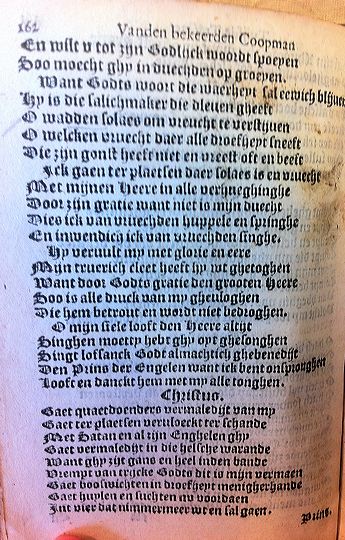 162 Vanden bekeerden Coopman
En wilt v tot zijn Godlijck woordt spoeyen
Soo moecht ghy in duechden op groeyen.
Want Godts woort die waerheyt sal eewich blijuen
Hy is die salichmaker die dleuen gheeft
O wadden solaes om vreucht te verstijuen
O welcken vruecht daer alle droefheyt sneeft
Die zijn gonst heeft niet en vreest oft en beeft
Ick gaen ter plaetsen daer solaes is en vruecht
Met mijnen Heere in alle verhueghinghe
Door zijn gratie want niet is mijn duecht
Dies ick van vruechden huppele en springhe
En inwendich ick van vruechden singhe.
Hy veruult my met glorie en eere
Mijn truerich cleet heeft hy wt ghetoghen
Want door Godts gratie den grooten Heere
Soo is alle druck van my gheuloghen
Die hem betrout en wordt niet bedroghen.
O mijn siele looft den Heere altijt
Singhen moetty hebt ghy opt ghesonghen
Singt lofsanck Godt almachtich ghebenedijt
Den Prins der Engelen want ick bent onsproughen
Looft en danckt hem met my alle tonghen.
Christus.
Gaet quaetdoenders vermaledijt van my
Gaet ter plaetsen veruloeckt ter schande
Met Satan en al zijn Enghelen ghy
Gaet vermaledijt in die helsche warande
Want ghy zijt gans en heel inden bande
Vrempt van trijcke Godts dit is mijn vermaen
Gaet booswichten in droefheyt menigherhande
Gaet huylen en suchten nv voordaen
Int vier dat nimmermeer wt en sal gaen.
Prins.